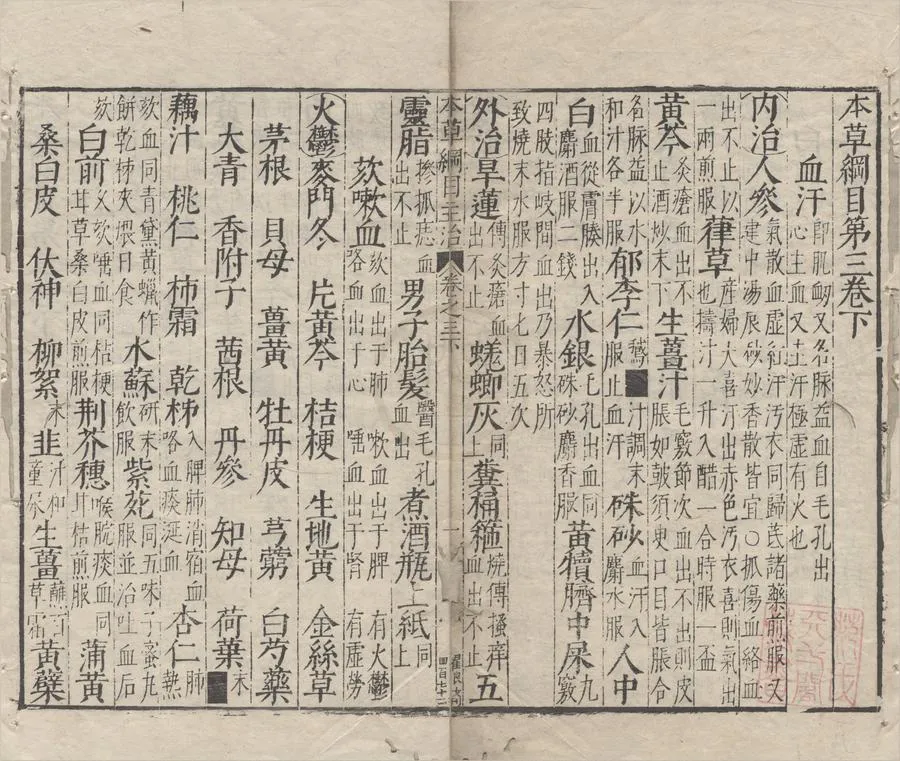 本草綱目第三卷下
血汗 即肌衂又名脉益血自毛孔出心主血又主汗極虛有火也
內治人參 氣散血虛紅汗污衣同歸茋諸藥前服又建中湯辰砂妙香散皆宜○抓傷血絡血
出不止以一兩煎服 葎草 産婦大喜汗出赤色污衣喜則氣出也擣汁一升入醋一合時服一盃
黄芩 灸瘡血出不止酒炒末下 生薑汁 毛竅節次血出不出則皮脹如皷須臾口目皆脹合
名脉益以水和汁各半服 郁李仁 鵝汁調末服止血汗 硃砂 血汗入麝水服 人中
白 血從膚腠出入麝酒服二錢 水銀 毛孔出血同硃砂麝香服 黃犢臍中屎 九竅
四肢指岐間血乃暴怒所致燒末水服方寸七日五次
外治旱蓮 傅灸瘡血出不止 蜣蜋灰 同上 糞桶箍 燒傅搔痒血出不止 五
靈脂 摻抓痣血出不止 男子胎髮 醫毛孔血出 煮酒瓶上紙 同上
本草綱目主治 卷之三下 一 四百七十二
欬嗽血 欬血出于肺 嗽血出于脾 有火鬱 咯血出于心 唾血出于腎 有虛勞
火鬱麥門冬 片黄芩 桔梗 生地黄 金絲草
茅根 貝母 薑黄 牡丹皮 芎藭 白芍藥
大青 香附子 茜根 丹參 知母 荷葉 末
藕汁 桃仁 柿霜 乾柹 入脾肺消宿血咯血痰涎血 杏仁 肺熱
欬血同青黛黄蠟作餅乾柹夾煨日食 水蘇 研末飲服 紫菀 同五味子蜜丸服並治吐血后
欬 白前 久欬唾血同桔梗甘草桑白皮煎服 荆芥穗 喉脘痰血同甘桔煎服 蒲黄
桑白皮 茯神 柳絮 末 韭 汁和童尿 生薑 蘸百草霜 黄蘗